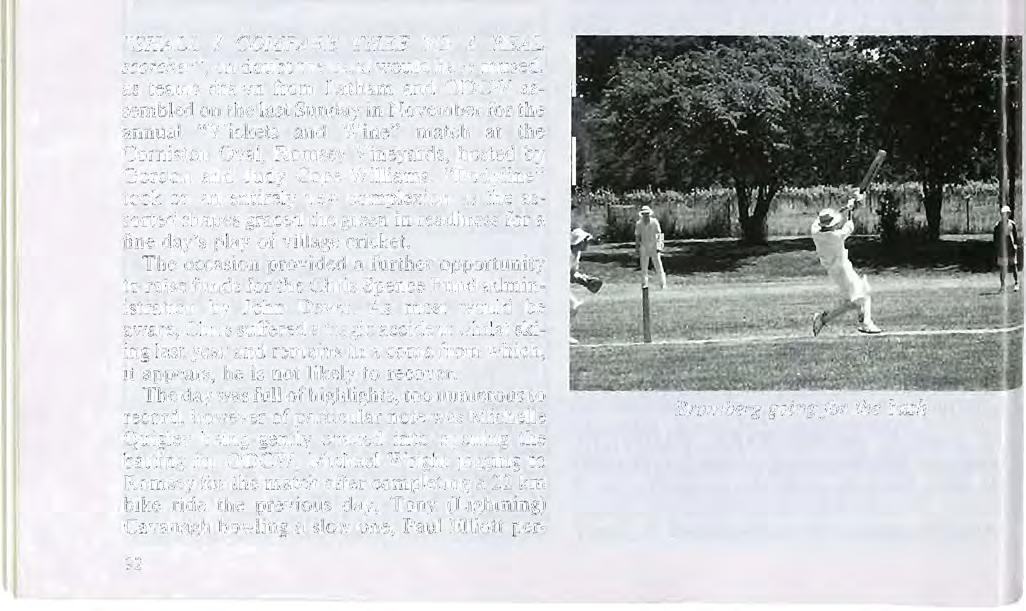 "SHALL I COMPARE THEE TO A REAL
scorcher", would have mused,
as teams drawn from Latham and as-
sembled on the last Sunday in November for the
annual "Wickets and Wine" match at the
Corniston Oval, Romsey Vineyards, hosted by
Gordon and Judy Cope-Williams. "Bodyline"
took on an entirely new complexion as the as-
sorted shapes graced the green in readiness for a
fine day's play of village cricket.
The occasion provided a further opportunity
to raise funds for the Chris Spence Fund admin-
istration by John Dever. As most would be
aware, Chris suffered a tragic accident whilst ski-
ing last year and remains in a coma from which,
it appears, he is not likely to recover.
The day was full of highlights, too numerous to
record, however of particular note was Michelle
Quigley being gently coaxed into opening the
batting for Michael Wright jogging to
Romsey for the match after completing a km
bike ride the previous day, Tony (Lightning)
Cavanagh bowling a slow one, Paul Elliott per-
Bromberg going for the bash
92